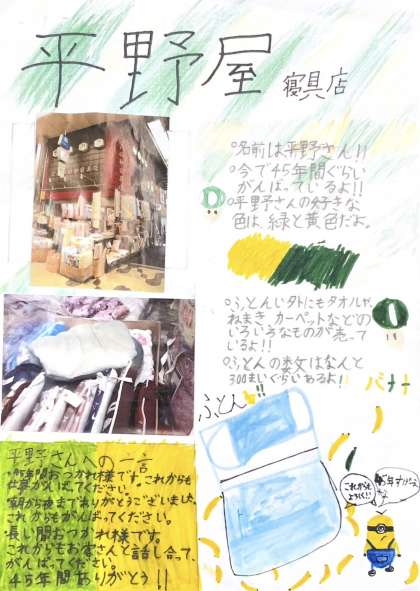 平野屋 寝具店
○名前は平野さん!!
○今で45年間ぐらい
がんばっているよ!!
○平野さんの好きな
色は緑と黄色だよ。
○ふとんい外にもタオルや
ねまき カーペットなどの
いろいろなものが売って
いるよ!!
○ふとんの数はなんと
300まいぐらいあるよ!!
バナナ
ふとん
これからも
よろしく!!
平野さんへの一言
年間おつかれ様です。これからも
仕事がんばってください。
朝から夜までありがとうございました。
これからもがんばってください。
長い間おつかれ様です。
これからもお客さんと話し合って、
がんばってください。
45年間ありがとう!!